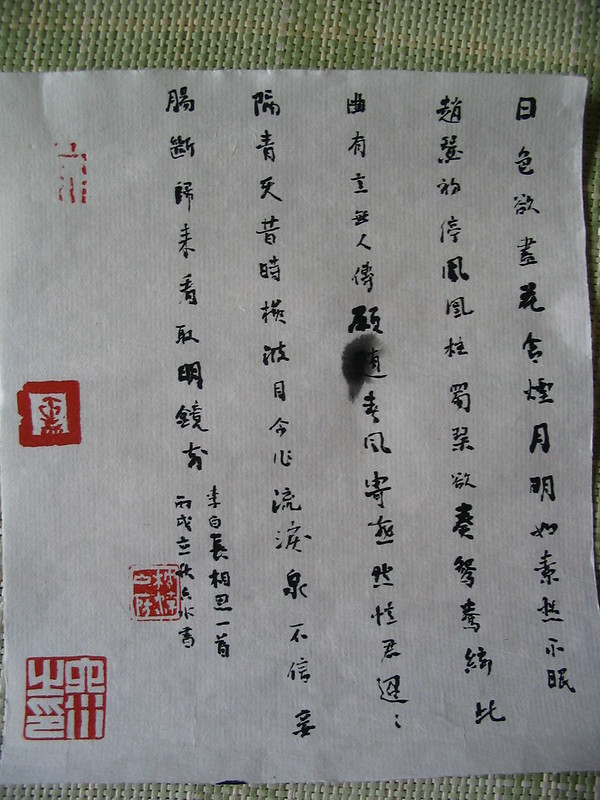 日色欲盡花含煙月明如素愁不眠
趙瑟初停鳳凰柱蜀琴欲奏鴛鴦絃此
曲有意無人傳願隨春風寄燕然憶君迢〻
隔青天昔時橫波目今作流淚泉不信妾
腸斷歸來看取明鏡前
李白長相思一首
丙戌立秋書
六川之印